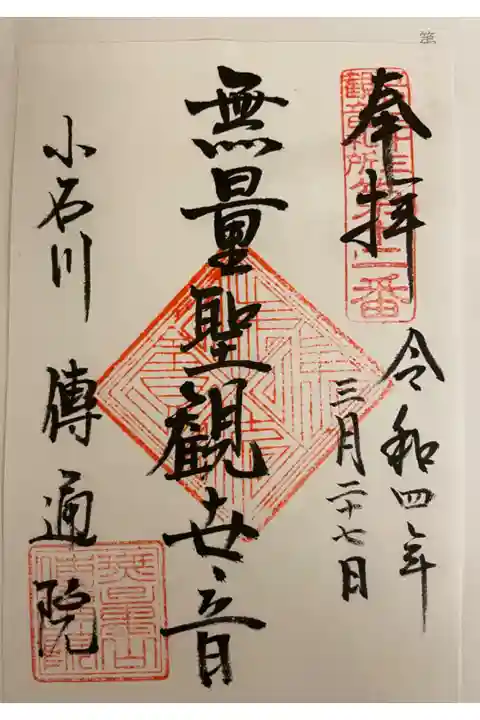 奉拝
令和四年
三月二十七日
無量聖観世音
小石川 傳通院
観音札所第十二番